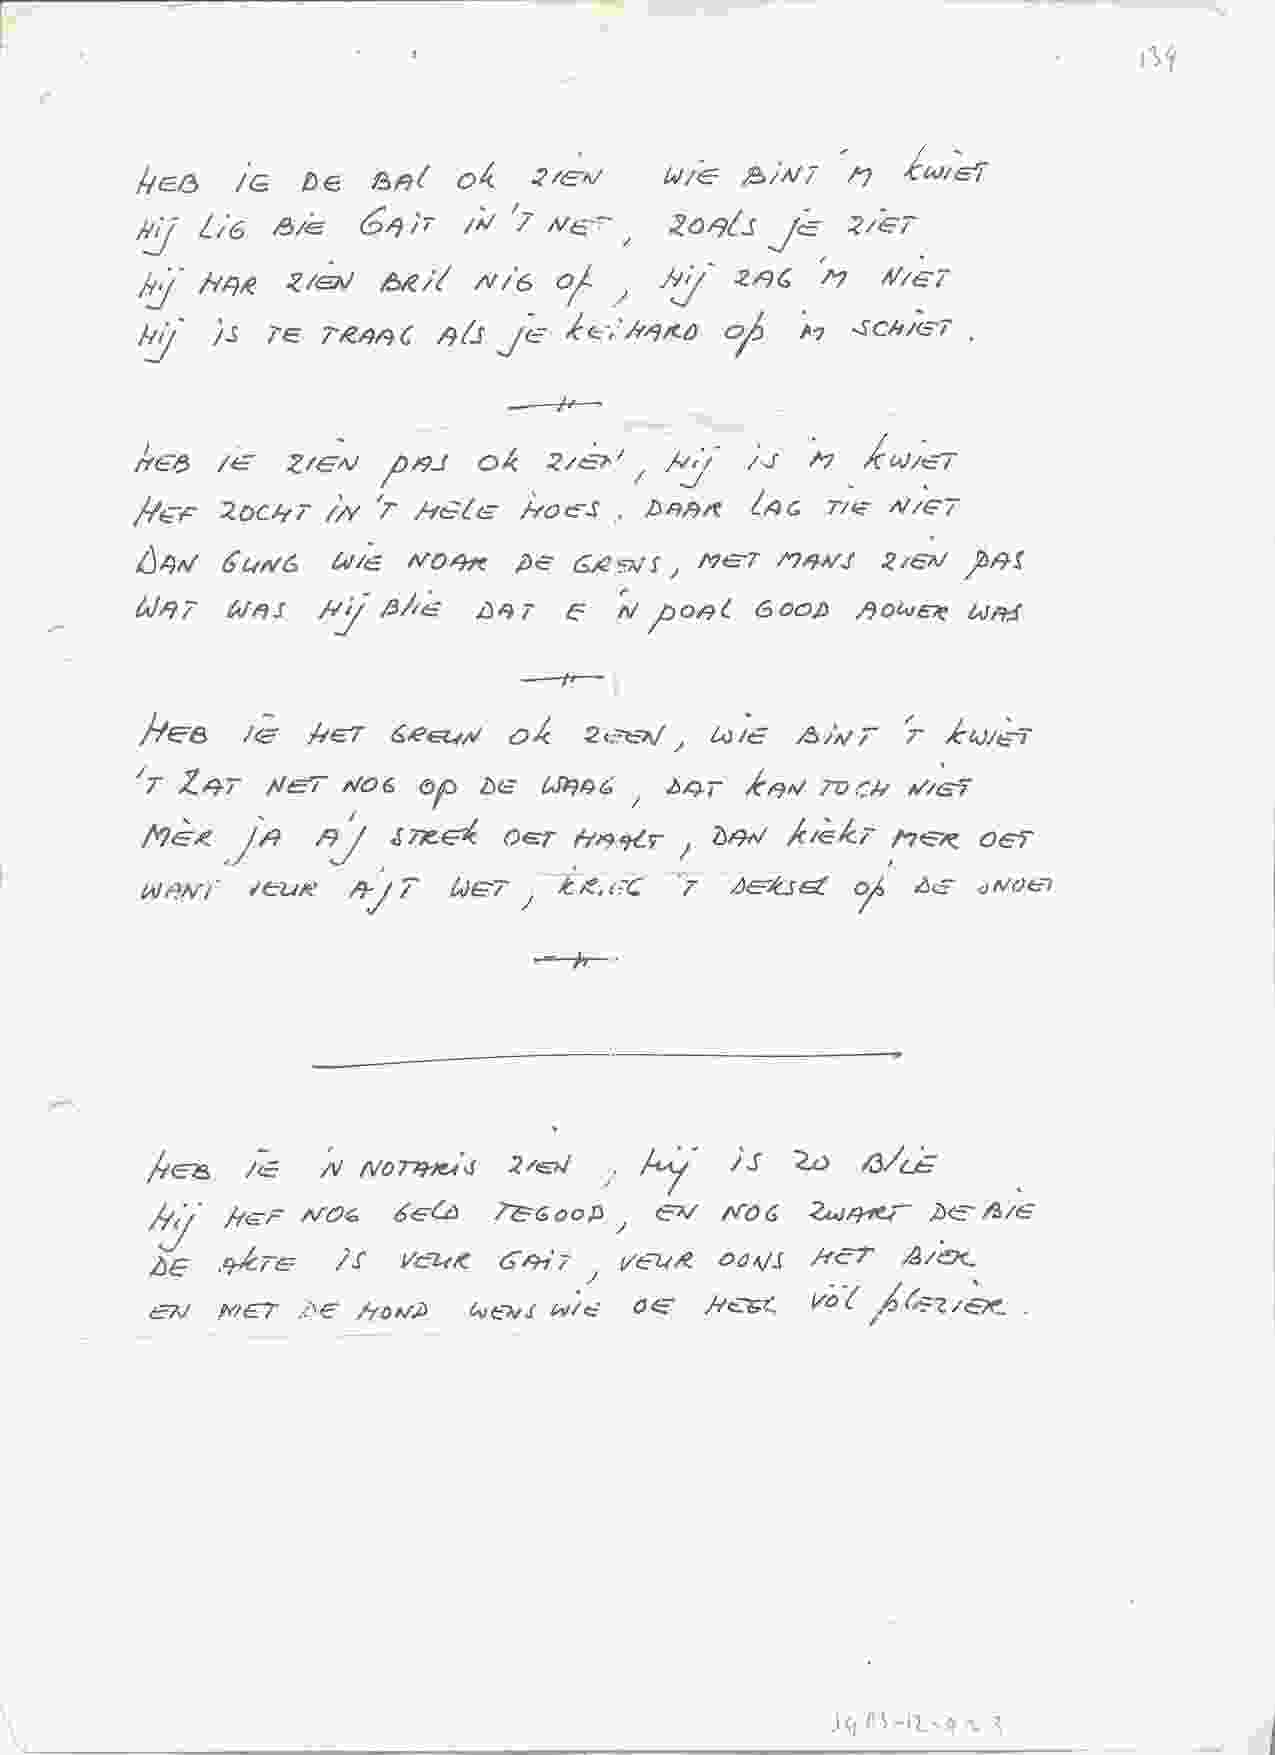 139
HEB IE DE BAL OK ZIEN WIE BINT 'M KWIET
HIJ LIG BIE GAIT IN 'T NET, ZOALS JE ZIET
HIJ HAR ZIEN BRIL NIG OP, HIJ ZAG 'M NIET
HIJ IS TE TRAAG ALS JE KEIHARD OP 'M SCHIET.
HEB IE ZIEN PAS OK ZIEN, HIJ IS 'M KWIET
HEF ZOCHT IN 'T HELE HOES. DAAR LAG TIE NIET
DAN GUNG WIE NOAR DE GRENS, MET MANS ZIEN PAS
WAT WAS HIJ BLIE DAT E 'N POAL GOOD AOWER WAS
HEB IE HET GREUN OK ZEEN, WIE BINT 'T KWIET
'T ZAT NET NOG OP DE WAAG, DAT KAN TOCH NIET
MÈR JA A'J STREK OET HAALT, DAN KIEKT MER OET
WANT VEUR A'JT WET, KRIEG 'T DEKSEL OP DE SNOET
HEB IE 'N NOTARIS ZIEN, HIJ IS ZO BLIE
HIJ HEF NOG GELD TEGOOD, EN NOG ZWART DE BIE
DE AKTE IS VEUR GAIT, VEUR OONS HET BIER
EN MET DE HOND WENS WIE OE HEEL VÖL PLEZIER.